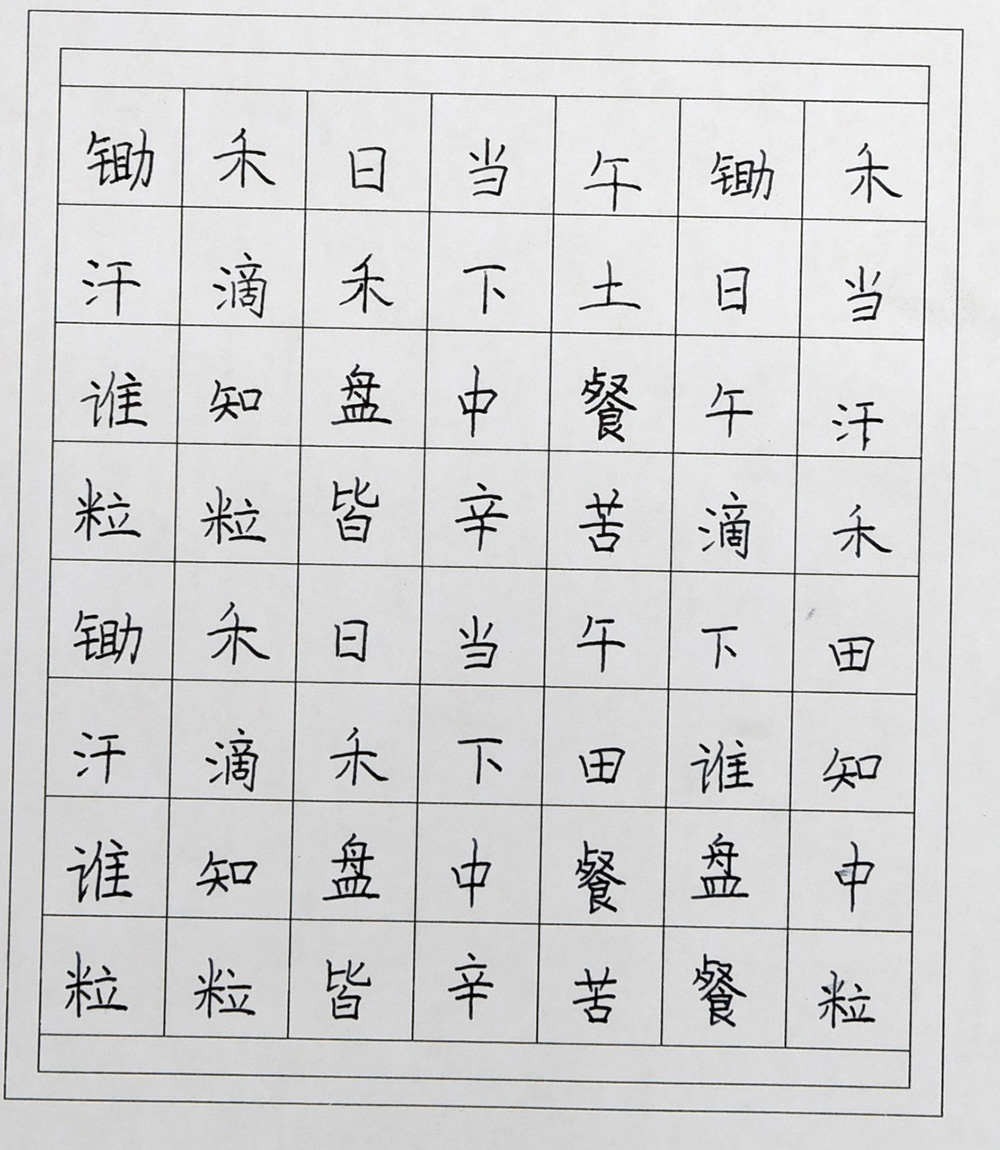 锄禾日当午锄禾
汗滴禾下土日当
谁知盘中餐午汗
粒粒皆辛苦滴禾
锄禾日当午下田
汗滴禾下田谁知
谁知盘中餐盘中
粒粒皆辛苦餐粒